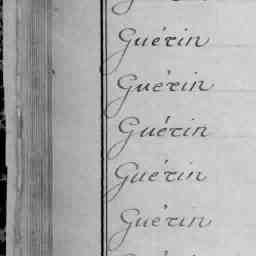 Guérin
Guérin
Guérin
Guérin
Guérin